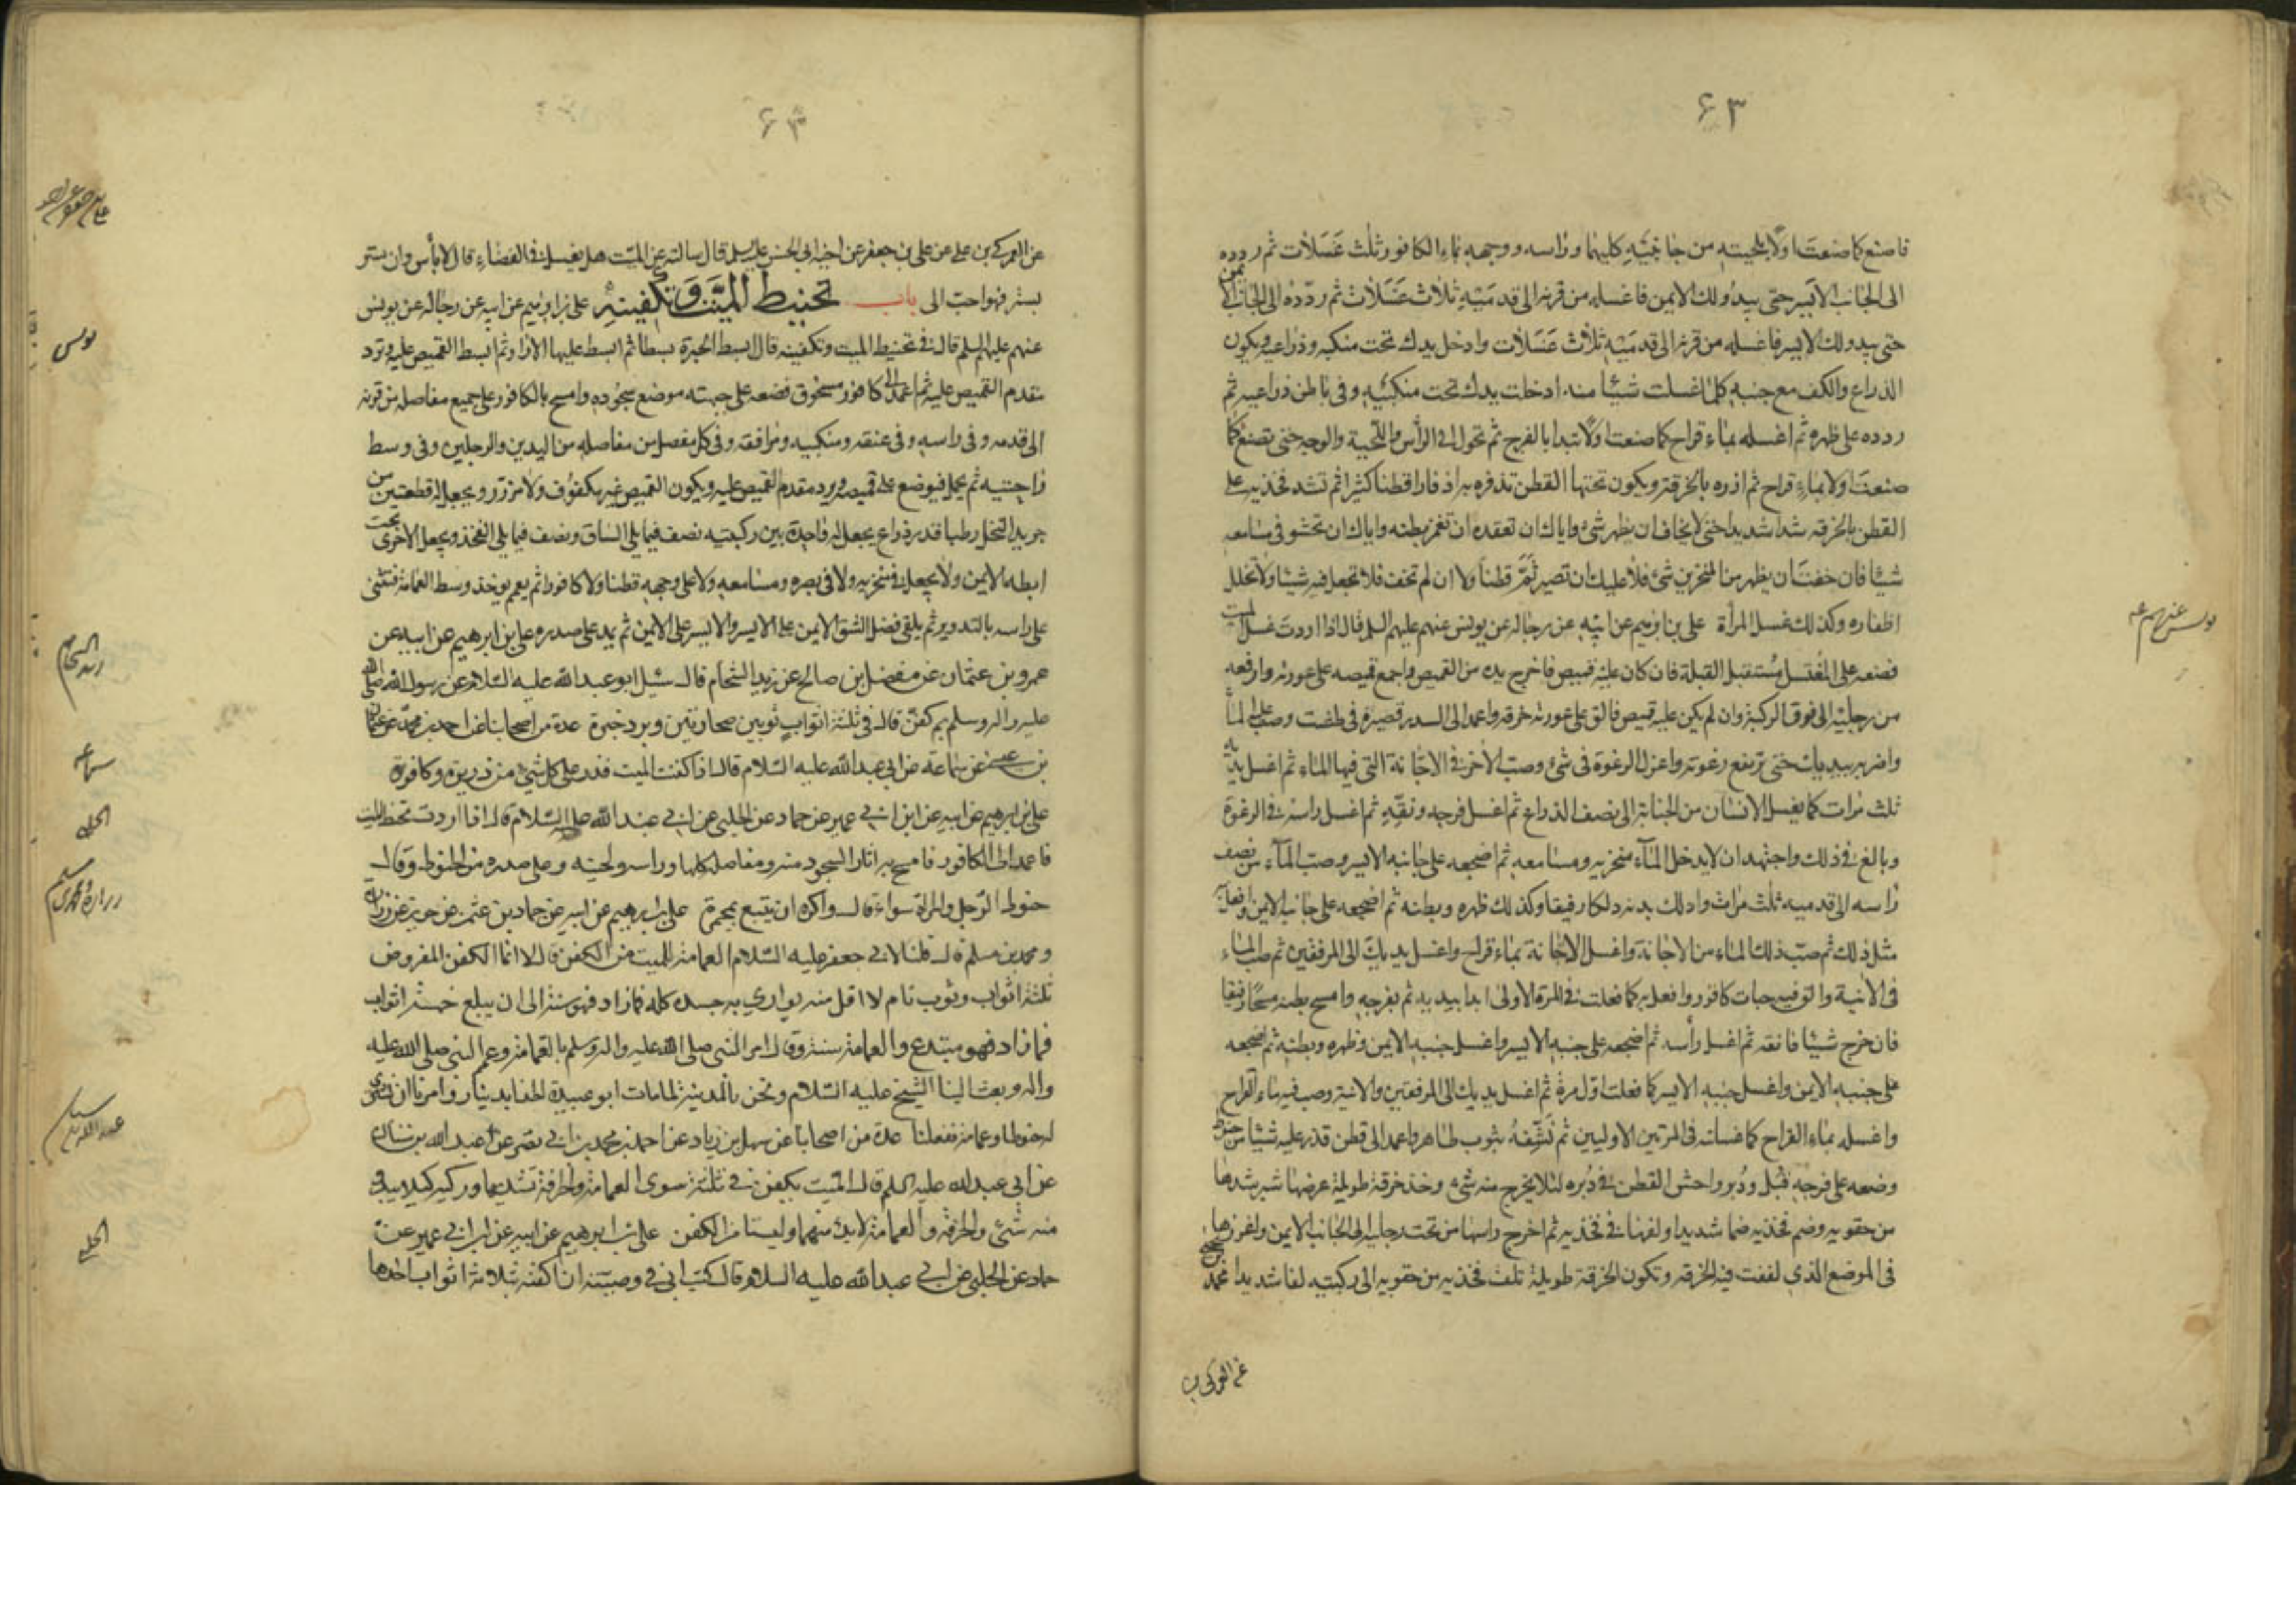 ۶۳
فاصنع كما صنعت اولا بلحيته من جانبيه كليهما وراسه ووجهه بماء الكافور ثلث غسلات ثم رده
الى الجانب الايسر حتى يبدو لك الايمن فاغسله من قرنه الى قدميه ثلاث غسلات ثم رده الى الجانب الايمن
حتى يبدو لك الايسر فاغسله من قرنه الى قدميه ثلاث غسلات وادخل يدك تحت منكبه وذراعيه ويكون
الذراع والكف مع جنبه كلما غسلت شيئا منه ادخلت يدك تحت منكبيه وفى باطن ذراعيه ثم
رده على ظهره ثم اغسله بماء قراح كما صنعت اولا تبدا بالفرج ثم تحول الى الرأس واللحية والوجه حتى تصنع كما
صنعت اولا بماء قراح ثم اذره بالخرقة ويكون تحتها القطن تذفره به اذفارا قطنا كثيرا ثم تشد فخذيه على
القطن بالخرقه شدا شديدا حتى لا يخاف ان يظهر شئ واياك ان تقعده ان تغمز بطنه واياك ان تحشو فى مسامعه
شيئا فان خفت ان يظهر من المنخرين شئ فلا عليك ان تصير ثم قطنا ولا ان لم تخف فلا تجعل فيه شيئا ولا تخلل
اظفاره وكذلك غسل المرأة على بن ابرهيم عن ابيه عن رجاله عن يونس عنهم عليهم السلم قال اذا اردت غسل الميت
فضعه على المغتسل مستقبل القبلة فان كان عليه قميص فاخرج يده من القميص واجمع قميصه على عورته وارفعه
من رجليه الى فوق الركبة وان لم يكن عليه قميص فالق على عورته خرقه واعمد الى السدر فصيره فى طشت وصب عليه الماء
واضربه بيديك حتى ترتفع رغوته واعزل الرغوة فى شئ وصب الاخر فى الاجانة التى فيها الماء ثم اغسل يديه
ثلث مرات كما يغسل الانسان من الجنابة الى نصف الذراع ثم اغسل فرجه ونقه ثم اغسل راسه فى الرغوة
وبالغ فى ذلك واجتهد ان لا يدخل الماء منخريه ومسامعه ثم اضجعه على جانبه الايسر وصب الماء من نصف
راسه الى قدميه ثلث مرات وادلك بدنه دلكا رفيقا وكذلك ظهره وبطنه ثم اضجعه على جانبه الايمن وافعل به
مثل ذلك ثم صب ذلك الماء من الاجانة واغسل الاجانة بماء قراح واغسل يديك الى المرفقين ثم صب الماء
فى الانية والق فيه حبات كافور وافعل به كما فعلت فى المرة الاولى ابدا بيديه ثم بفرجه وامسح بطنه مسحا رفيقا
فان خرج شيئا فانقه ثم اغسل رأسه ثم اضجعه على جنبه الايسر واغسل جنبه الايمن وظهره وبطنه ثم اضجعه
على جنبه الايمن واغسل جنبه الايسر كما فعلت اول مرة ثم اغسل يديك الى المرفقين والانية وصب فيه ماء القراح
واغسله بماء القراح كما غسلته فى المرتين الاوليين ثم نشفه بثوب طاهر واعمد الى قطن فذر عليه شيئا من حنوط
وضعه على فرجه قبل ودبر واحش القطن فى دبره لئلا يخرج منه شئ وخذ خرقة طويلة عرضها شبر شدها
من حقويه وضم فخذيه ضما شديدا ولفها فى فخذيه ثم اخرج راسها من تحت رجليه الى الجانب الايمن واغرزها
فى الموضع الذى لففت فيه الخرقه وتكون الخرقة طويلة تلف فخذيه من حقويه الى ركبتيه لفا شديدا محمد بن يحيى
يونس عنهم ع
عن العمركى بن
۶۴
عن العمركى بن على عن على بن جعفر عن اخيه ابى الحسن عليه السلم قال سالته عن الميت هل يغسل فى الفضاء قال لا بأس وان ستر
بستر فهو احب الى باب تحنيط الميت وتكفينه على بن ابرهيم عن ابيه عن رجاله عن يونس
عنهم عليهم السلم قال فى تحنيط الميت وتكفينه قال ابسط الحبرة بسطا ثم ابسط عليها الازار ثم ابسط القميص عليه وترد
مقدم القميص عليه ثم اعمد الى كافور مسحوق فضعه على جبهته موضع سجوده وامسح بالكافور على جميع مفاصله من قرنه
الى قدمه وفى راسه وفى عنقه ومنكبيه ومرافقه وفى كل مفصل من مفاصله من اليدين والرجلين وفى وسط
راحتيه ثم يحمل فيوضع على قميصه ويرد مقدم القميص عليه ويكون القميص غير مكفوف ولا مزرر ويجعل له قطعتين من
جريد النخل رطبا قدر ذراع يجعل له واحدة بين ركبتيه نصف فيما يلى الساق ونصف فيما يلى الفخذ ويجعل الاخرى تحت
ابطه الايمن ولا يجعل فى منخريه ولا فى بصره ومسامعه ولا على وجهه قطنا ولا كافورا ثم يعمم يوخذ وسط العمامة فتثنى
على راسه بالتدوير ثم يلقى فضل الشق الايمن على الايسر والايسر على الايمن ثم يمد على صدره على بن ابرهيم عن ابيه عن
عمرو بن عثمان عن مفضل بن صالح عن زيد الشحام قال سئل ابو عبد الله عليه السلام عن رسول الله صلى الله
عليه واله وسلم بم كفن قال فى ثلثة اثواب ثوبين صحاريتين وبرد حبرة عدة من اصحابنا عن احمد بن محمد عن عثمان
بن عيسى عن سماعة عن ابى عبد الله عليه السلام قال اذا كفنت الميت فذر على كل شئ من ذريرة وكافورة
على بن ابرهيم عن ابيه عن ابن ابى عمير عن حماد عن الحلبى عن ابى عبد الله عليه السلام قال اذا اردت تحنط الميت
فاعمد الى الكافور فامسح به اثار السجود منه ومفاصله كلها وراسه ولحيته وعلى صدره من الحنوط وقال
حنوط الرجل والمراة سواء قال واكره ان يتبع بمجمرة على بن ابرهيم عن ابيه عن حماد بن عثمن عن حريز عن زرارة
ومحمد بن مسلم قال قلنا لابى جعفر عليه السلام العمامة للميت من الكفن قال لا انما الكفن المفروض
ثلثة اثواب وثوب تام لا اقل منه يوارى به جسده كله فما زاد فهو سنة الى ان يبلغ خمسة اثواب
فما زاد فهو مبتدع والعمامة سنة وقال امر النبى صلى الله عليه واله وسلم بالعمامة وعمم النبى صلى الله عليه
واله وبعث الينا الشيخ عليه السلام ونحن بالمدينة لما مات ابو عبيدة الحذا بدينار وامرنا ان نشترى
له حنوطا وعمامة ففعلنا عدة من اصحابنا عن سهل بن زياد عن احمد بن محمد بن ابى نصر عن عبد الله بن سنان
عن ابى عبد الله عليه السلم قال الميت يكفن فى ثلثة سوى العمامة والخرقة تشد بها وركيه كيلا يبدو
منه شئ والخرقة والعمامة لا بد منهما وليستا من الكفن على بن ابرهيم عن ابيه عن ابن ابى عمير عن
حماد عن الحلبى عن ابى عبد الله عليه السلام قال كتب ابى فى وصيته ان اكفنه بثلاثة اثواب احدها
يونس
زيد الشحام
سماعه
الحلبى
الحلبى